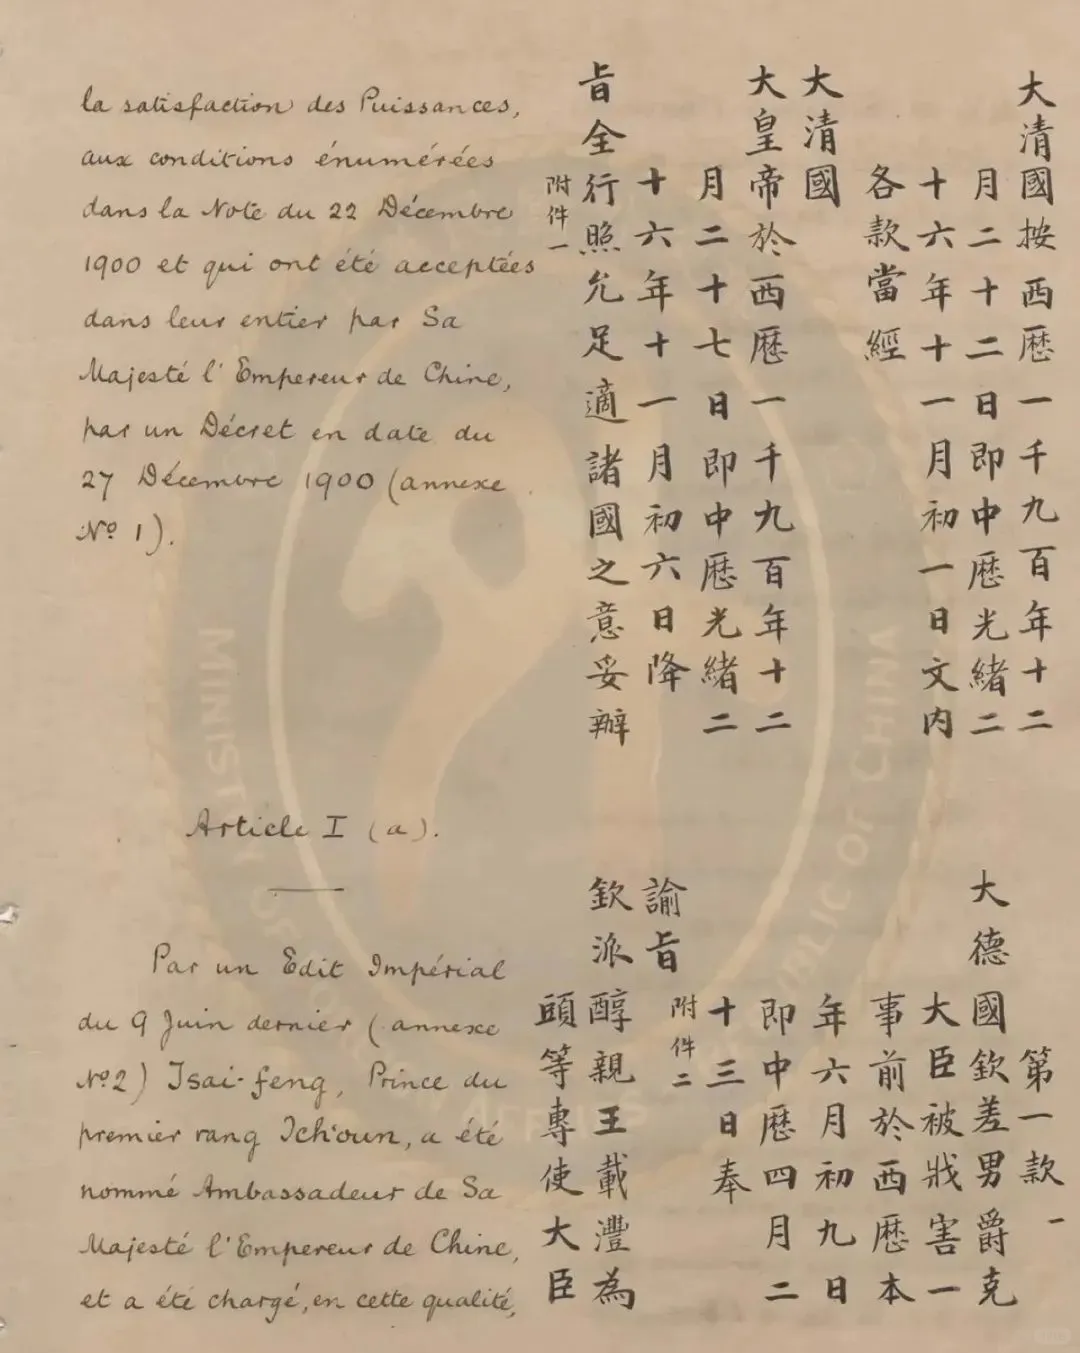 la satisfaction des Puissances,
aux conditions énumérées
dans la Note du 22 Décembre
1900 et qui ont été acceptées
dans leur entier par Sa
Majesté l'Empereur de Chine,
par un Décret en date du
27 Décembre 1900 (annexe
Nº 1).
大清國按西歷一千九百年十二
月二十二日即中歷光緒二
十六年十一月初一日文内
各款當經
大清國
大皇帝於西歷一千九百年十二
月二十七日即中歷光緒二
十六年十一月初六日降
旨全行照允足適諸國之意妥辦
附件一
Article I (a).
Par un Edit Impérial
du 9 Juin dernier (annexe
Nº2) Tsai-feng, Prince du
premier rang Tch'oun, a été
nommé Ambassadeur de Sa
Majesté l'Empereur de Chine,
et a été chargé, en cette qualité,
第一款一
大德國欽差男爵克
大臣被戕害一
事前於西歷本
年六月初九日
即中歷四月二
十三日奉
附件二
諭旨
欽派醇親王載灃為
頭等專使大臣
MINISTRY OF
REPUBLIC OF CHINA